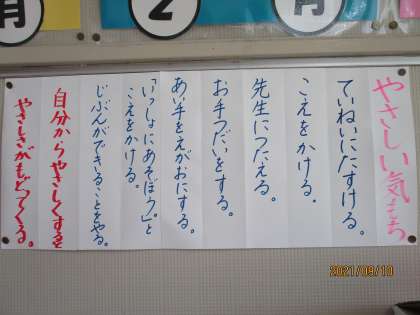 やさしい気もち
ていねいにたすける。
こえをかける。
先生につたえる。
お手つだいをする。
あい手をえがおにする。
「いっしょにあそぼう。」と
こえをかける。
じぶんができることをやる。
自分からやさしくすると
やさしさがもどってくる。
2
2021/09/10